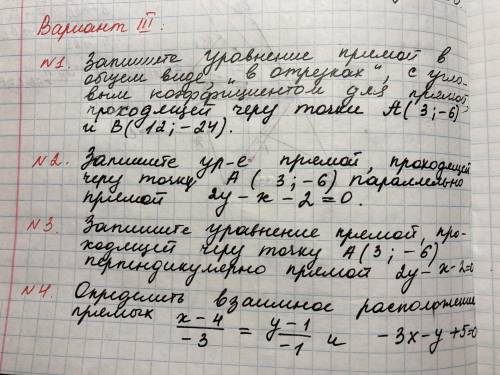 Вариант III.
№1. Запишите уравнение прямой в
общем виде, "в отрезках", с угло-
вым коэффициентом для прямой,
проходящей через точки A(3;-6)
и B(12;-24).
№2. Запишите ур-е прямой, проходящей
через точку A(3;-6) параллельно
прямой 2y-x-2=0.
№3. Запишите уравнение прямой, про-
ходящей через точку A(3;-6)
перпендикулярно прямой 2y-x-2=0
№4. Определить взаимное расположение
прямых x-4/-3 = y-1/-1 и -3x-y+5=0